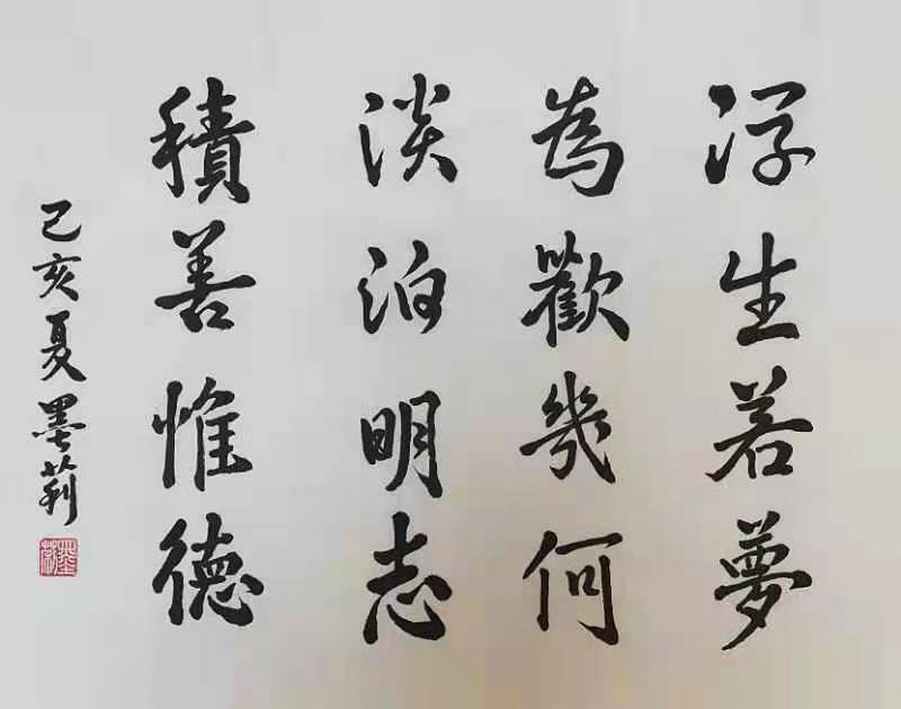 浮生若夢
為歡幾何
淡泊明志
積善惟德
己亥夏墨莉
墨莉